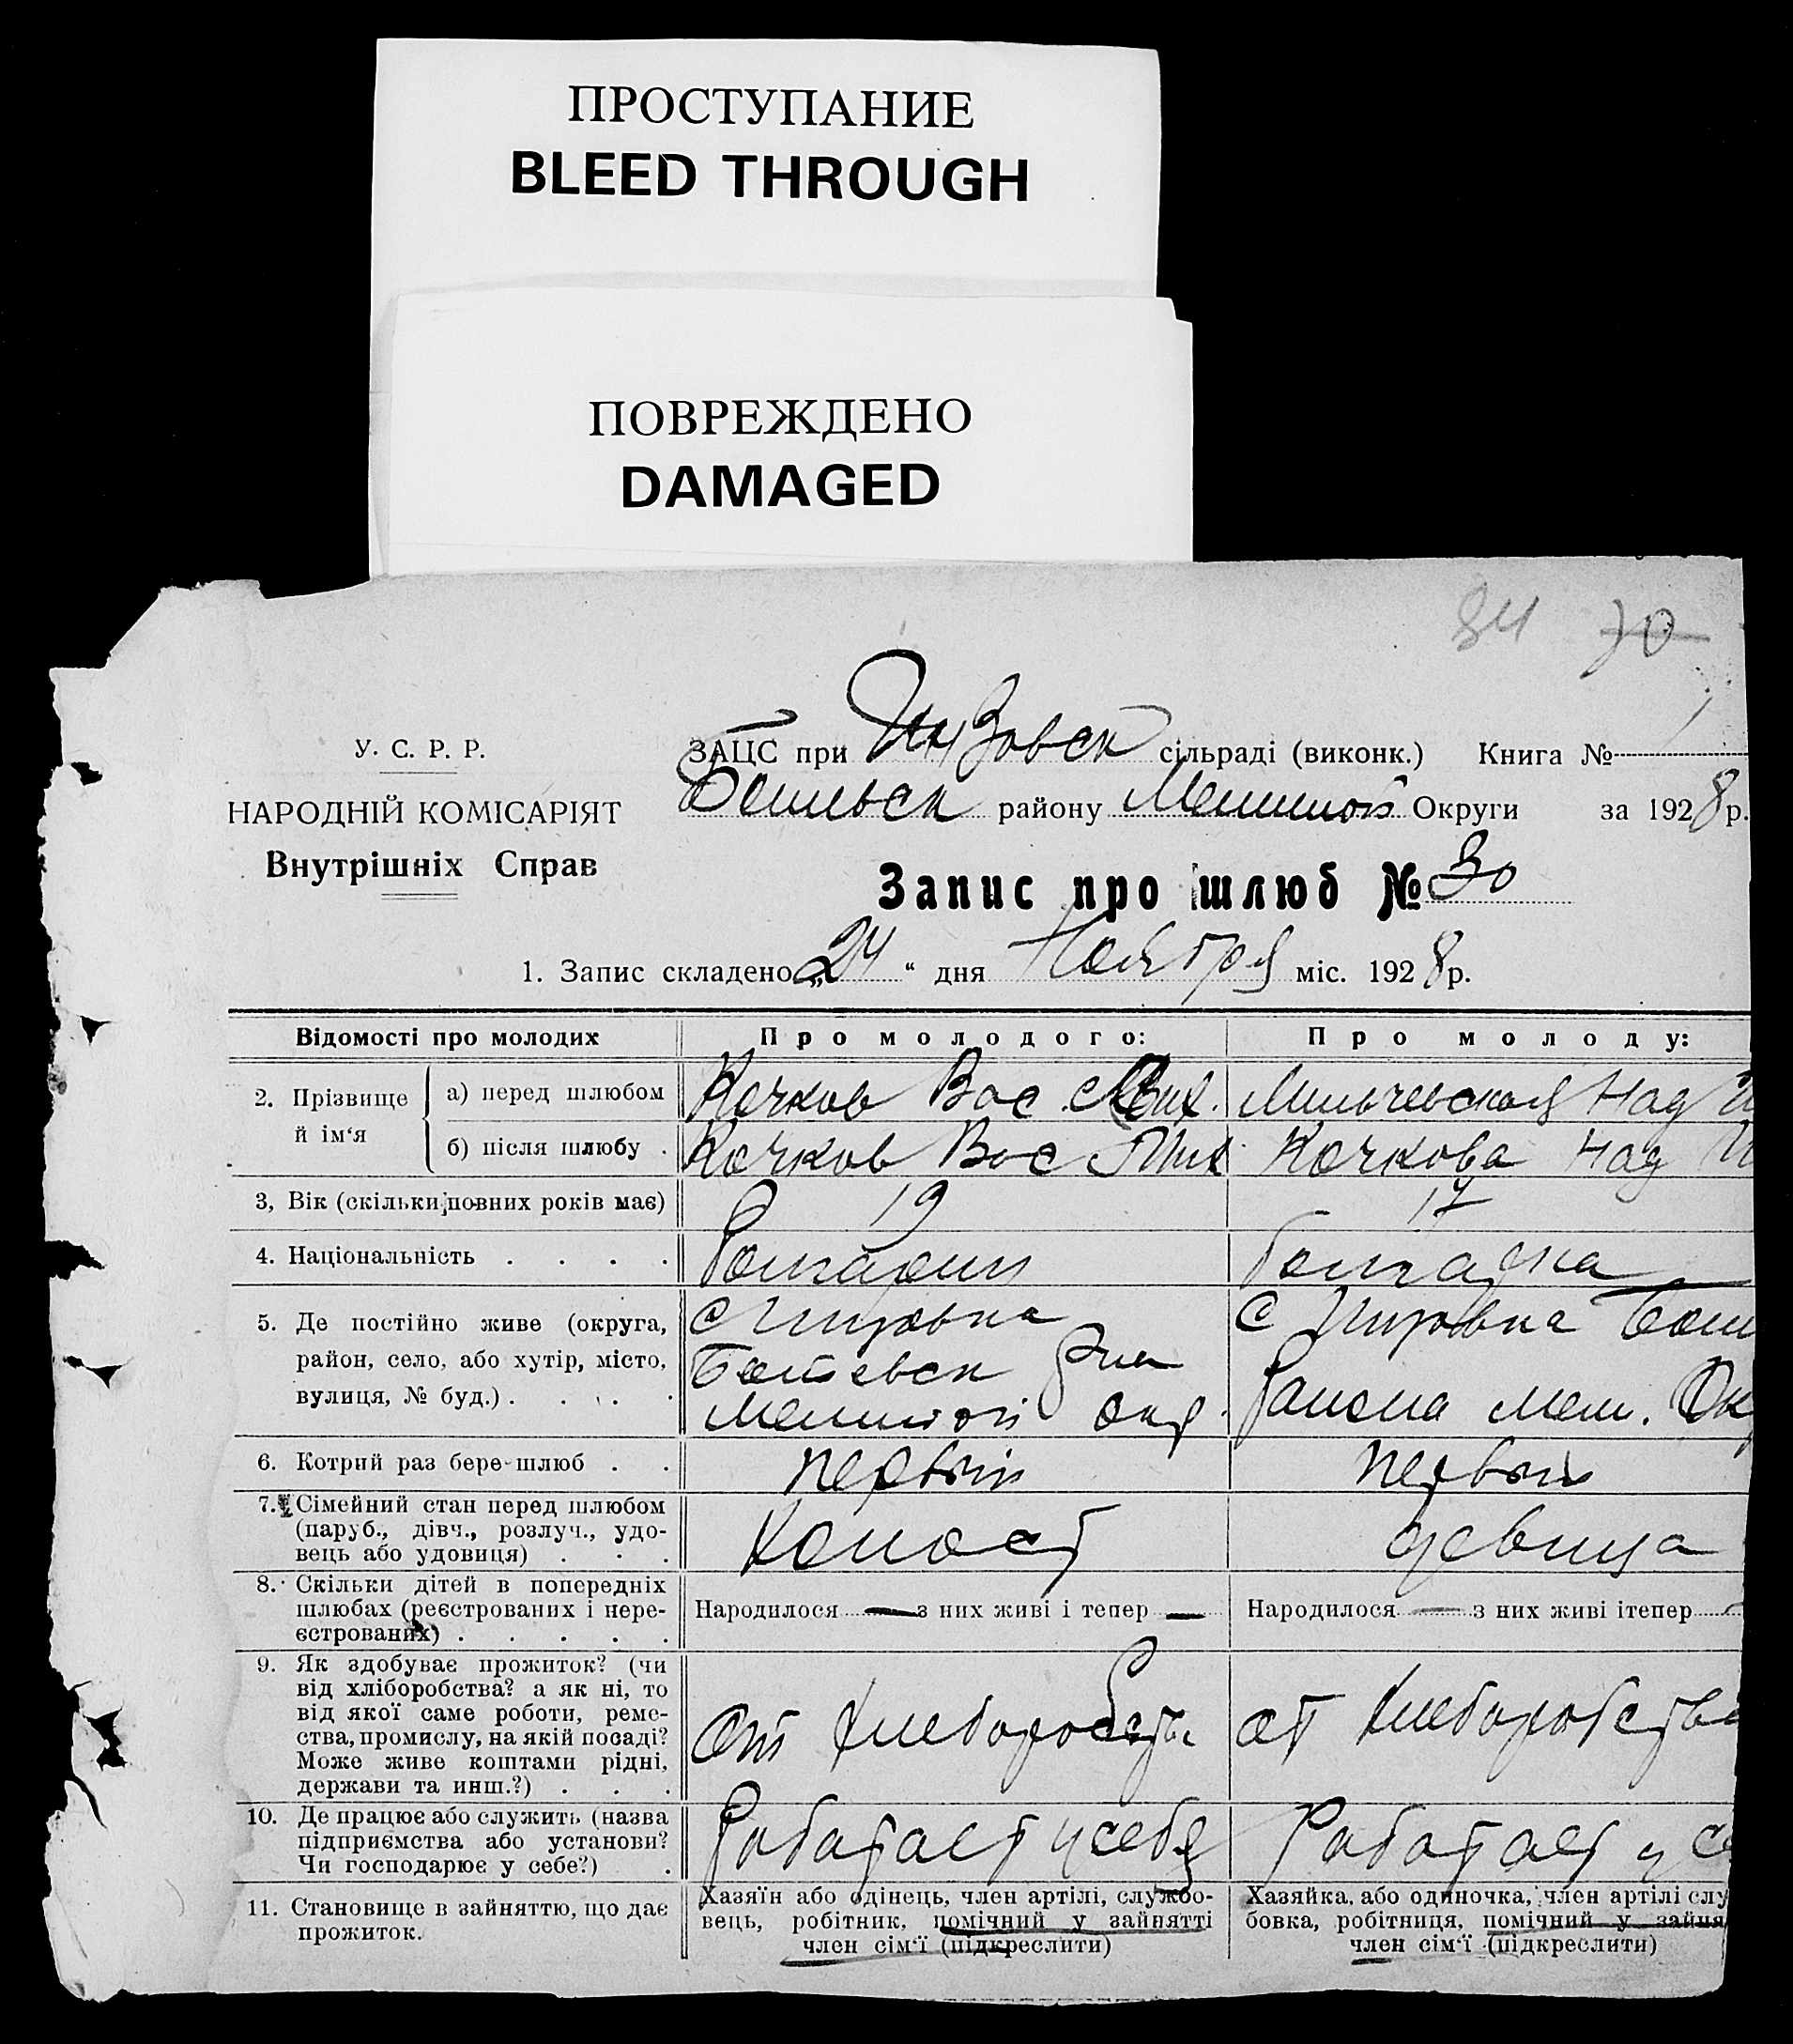 ПРОСТУПАНИЕ
BLEED THROUGH
ПОВРЕЖДЕНО
DAMAGED
84 70
У. С. Р. Р.
НАРОДНІЙ КОМІСАРІЯТ
Внутрішніх Справ
ЗАЦС при Инзовск сільраді (виконк.) Книга № 1
району Округи за 1928р.
Запис про шлюб № 30
1. Запис складено „24“ дня Ноября міс. 1928р.
Відомості про молодих Про молодого: Про молоду:
2. Прізвище й ім‘я
а) перед шлюбом Кочков Вас Мих. Мильчевская Над И
б) після шлюбу . Кочков Вас Мих Кочкова Над И
3, Вік (скільки повних років має) 19 17
4. Національність . . . . болгарин болгарка
5. Де постійно живе (округа, с с
район, село, або хутір, місто, р-на района Мел. Ок
вулиця, № буд.) . . . . окр.
6. Котрий раз бере шлюб . . первый первый
7. Сімейний стан перед шлюбом
(паруб., дівч., розлуч., удо-
вець або удовиця) . . . холост девица
8. Скільки дітей в попередніх
шлюбах (реєстрованих і нере-
єстрованих) . . . . . Народилося — з них живі і тепер — Народилося — з них живі ітепер —
9. Як здобуває прожиток? (чи
від хліборобства? а як ні, то
від якої саме роботи, реме-
ства, промислу, на якій посаді?
Може живе коштами рідні,
держави та инш.?) . . . от хлеборобства от хлеборобства
10. Де працює або служить (назва
підприємства або установи?
Чи господарює у себе?) . Работает у себя Работает у се
11. Становище в зайняттю, що дає
прожиток.
Хазяїн або одінець, член артілі, службо-
вець, робітник, помічний у зайнятті
член сім‘ї (підкреслити)
Хазяйка, або одиночка, член артілі слу
бовка, робітниця, помічний у зайня
член сім‘ї (підкреслити)